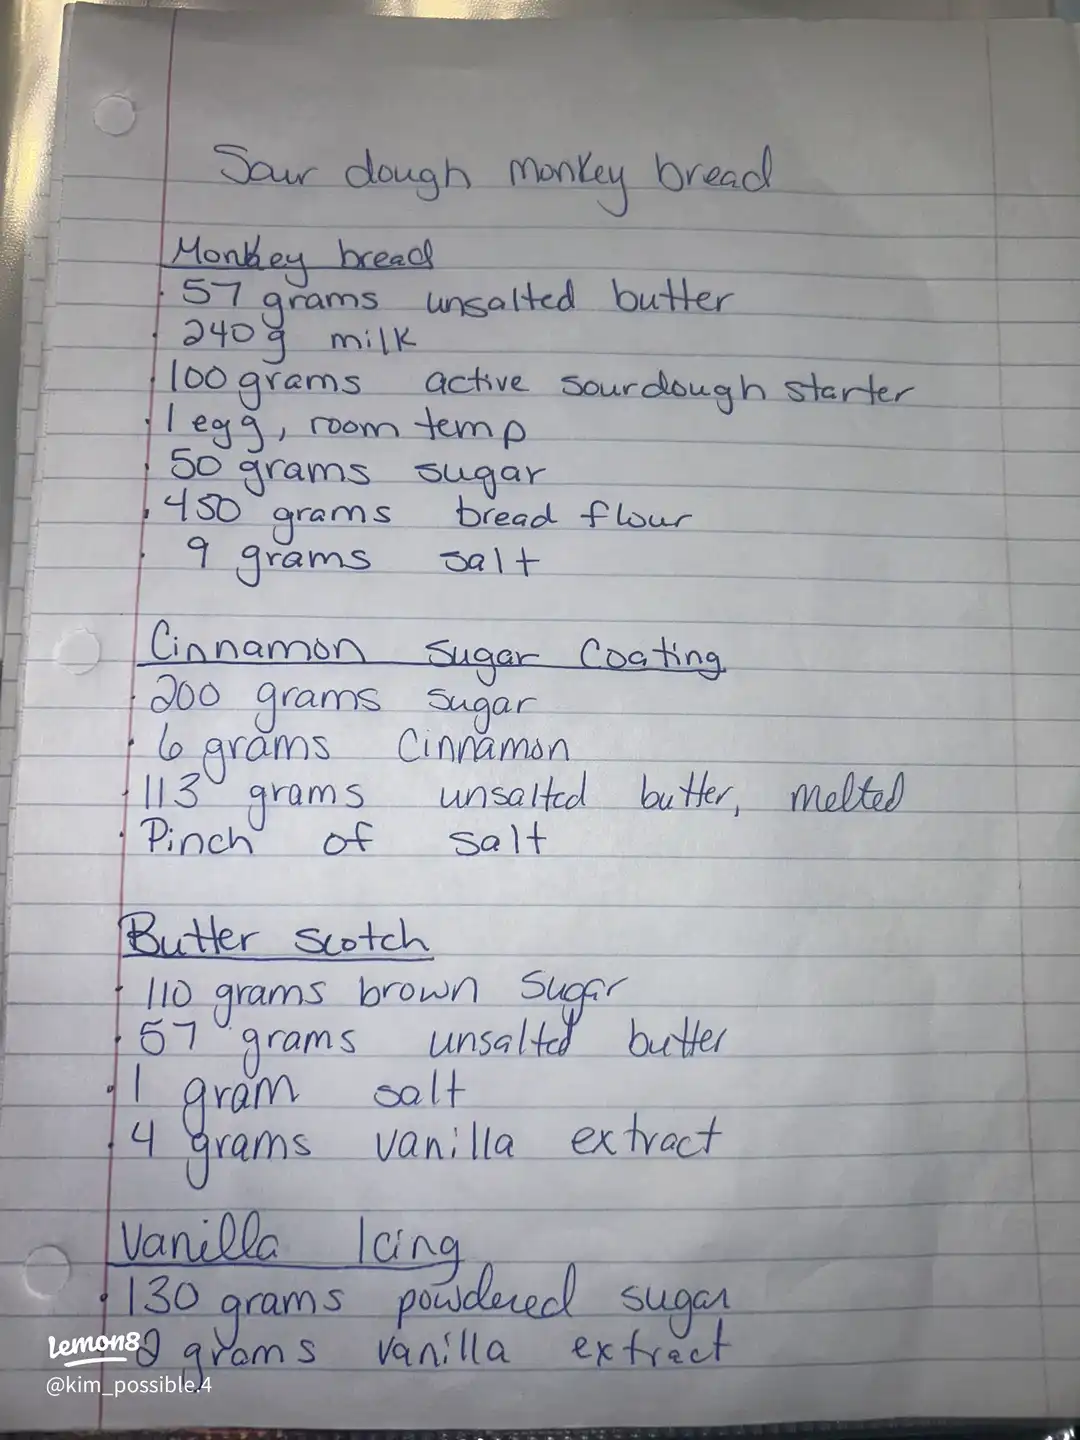 Sour dough monkey bread
Monkey bread
· 57 grams unsalted butter
· 240g milk
· 100 grams active sourdough starter
· 1 egg, room temp
· 50 grams sugar
· 450 grams bread flour
· 9 grams salt
Cinnamon Sugar Coating
· 200 grams sugar
· 6 grams Cinnamon
· 113 grams unsalted butter, melted
· Pinch of salt
Butter scotch
· 110 grams brown Sugar
· 57 grams unsalted butter
· 1 gram salt
· 4 grams vanilla extract
Vanilla Icing
· 130 grams powdered sugar
2 grams vanilla extract
Lemon8
@kim_possible.4